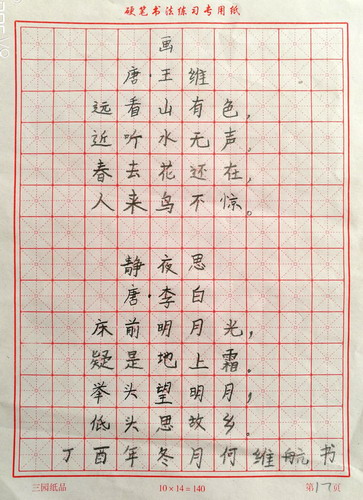 硬笔书法练习专用纸
画
唐·王维
远看山有色，
近听水无声。
春去花还在，
人来鸟不惊。
静夜思
唐·李白
床前明月光，
疑是地上霜。
举头望明月，
低头思故乡。
丁酉年冬月何维航书
三园纸品 10×14=140 第17页